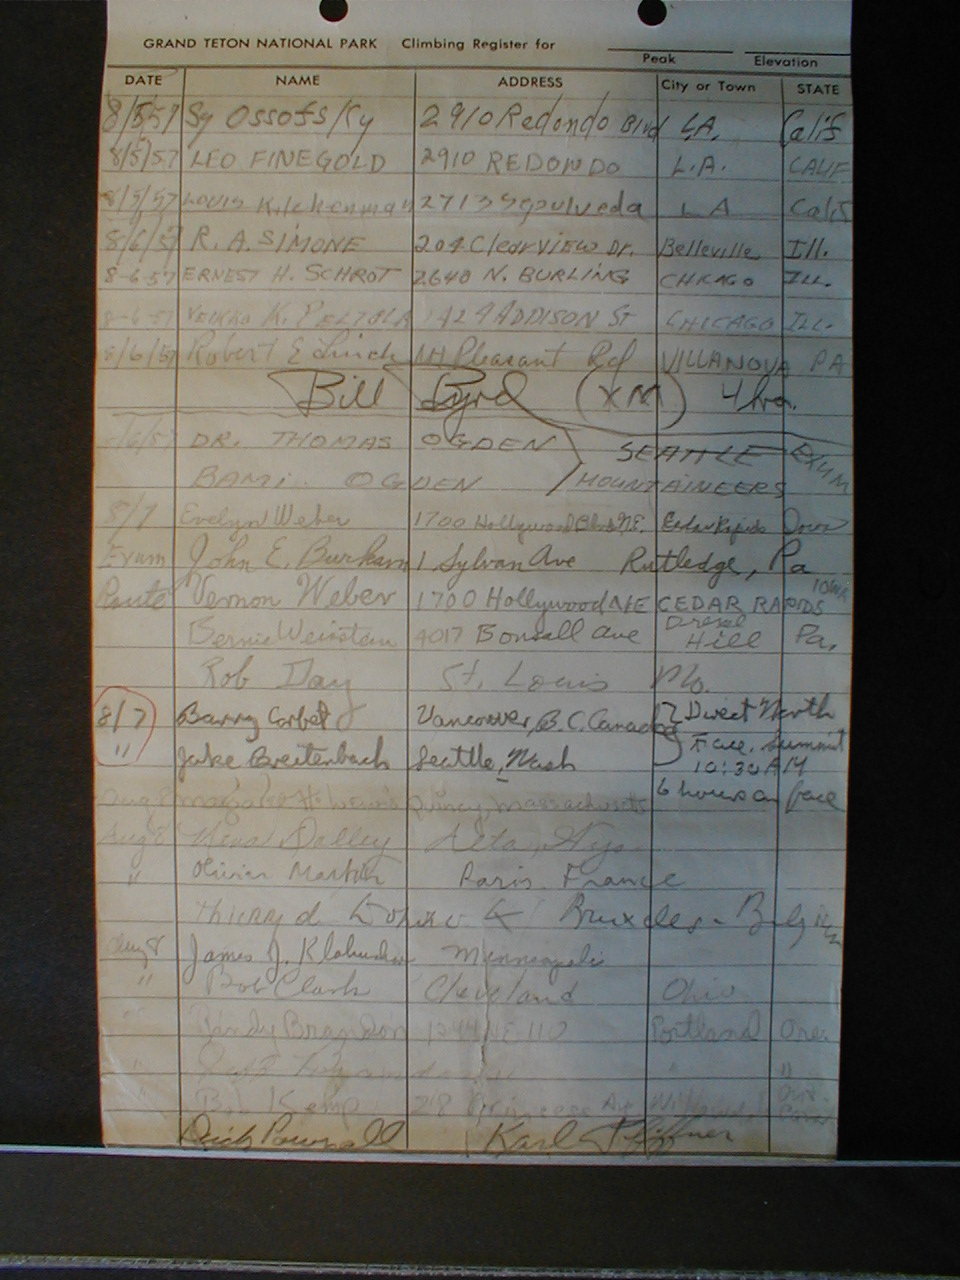 GRAND TETON NATIONAL PARK Climbing Register for
Peak Elevation
DATE NAME ADDRESS City or Town STATE
8/5/57 Sy Ossofsky 2910 Redondo Blvd LA. Calif
8/5/57 LEO FINEGOLD 2910 REDONDO L.A. CALIF
8/5/57 LOUIS 2713 Sepulveda LA Calif
8/6/57 R. A. SIMONE 204 Clearview Dr. Belleville Ill.
8-6-57 ERNEST H. SCHROT 2640 N. BURLING CHICAGO ILL.
8-6-57 VEIKKO K. PELTOLA 1429 ADDISON ST CHICAGO ILL.
8/6/57 Robert E Pleasant Rd VILLANOVA PA
Bill Byrd (XM) 4 hrs.
8/6/57 DR. THOMAS OGDEN SEATTLE EXUM
BAMI OGDEN MOUNTAINEERS
8/7 Evelyn Weber 1700 Hollywood Blvd N.E. Cedar Rapids Iowa
Exum John E. Burkam 1 Sylvan Ave Rutledge, Pa
Route Vernon Weber 1700 Hollywood NE CEDAR RAPIDS IOWA
Bernie Weinstein 4017 Bonsall Ave Drexel Hill Pa.
Rob Day St. Louis Mo.
8/7 Barry Corbet Vancouver, B.C. Canada Direct North
" Jake Breitenbach Seattle, Wash Face, Summit
10:30 AM
Aug 8 Quincy, Massachusetts 6 hours on face
Aug 8 Dalley Alta, Wyo.
" Olivier Martin Paris France
Thierry d Bruxelles - Belgium
Aug 8 James J. Minneapolis
" Bob Clark Cleveland Ohio
" Brandon 1244 NE 110 Portland Ore.
" " "
" Bob Kemp 218 Princess Ave
Dick Pownall Karl Pfiffner